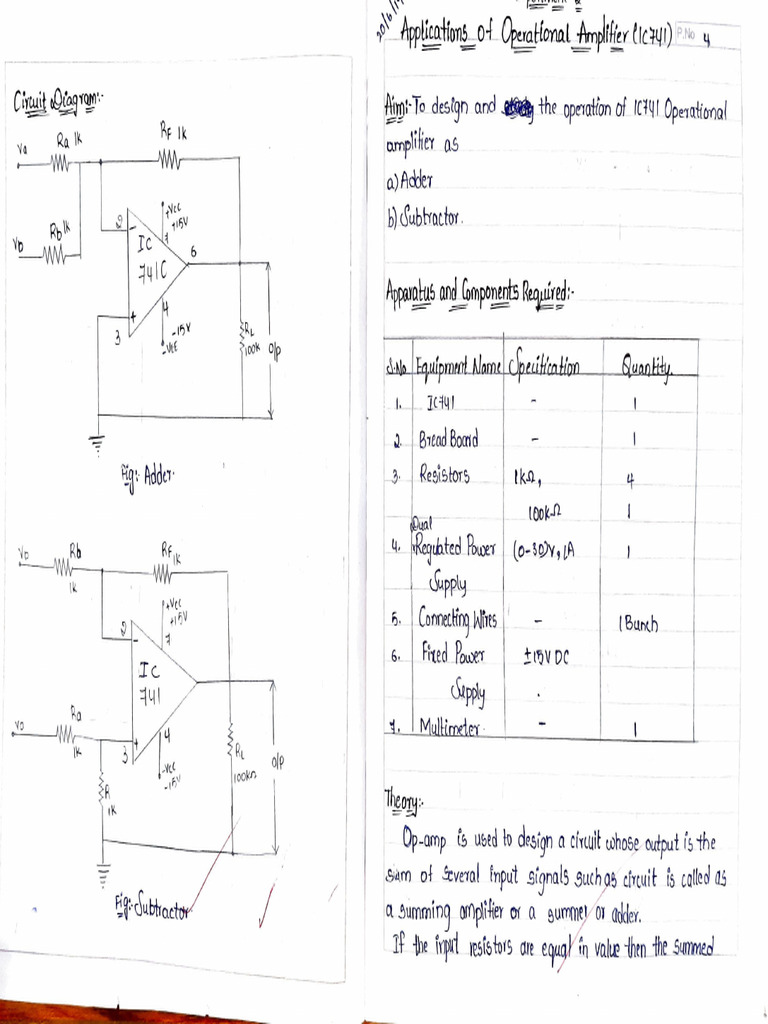 Circuit Diagram:-
Ra 1k
RF 1k
Va
Rb 1k
Vb
+VCC
+15V
2
-
7
IC
741C
6
4
+
3
-15V
-VEE
RL
100k
O/P
Fig: Adder.
Vb
Rb
1k
RF 1k
+VCC
+15V
2
-
7
IC
741
Ra
1k
3
+
4
-VCC
-15V
RL
100kΩ
O/P
R
1k
Fig:- Subtractor
Applications of Operational Amplifier (IC741)
P.No 4
Aim:- To design and the operation of IC741 Operational
amplifier as
a) Adder
b) Subtractor.
Apparatus and Components Required:-
S.No Equipment Name Specification Quantity.
1. IC741 - 1
2. Bread Board - 1
3. Resistors 1kΩ, 4
100kΩ 1
Dual
4. Regulated Power (0-30)V, 1A 1
Supply
5. Connecting Wires - 1 Bunch
6. Fixed Power ±15V DC
Supply
7. Multimeter - 1
Theory:-
Op-amp is used to design a circuit whose output is the
sum of several input signals such as circuit is called as
a summing amplifier or a summer or adder.
If the input resistors are equal in value then the summed